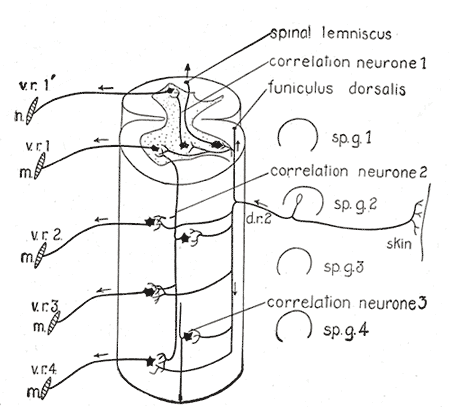 spinal lemniscus
correlation neurone 1
funiculus dorsalis
v.r. 1'
n.
v.r.1
m.
sp.g.1
correlation neurone 2
sp.g.2
d.r.2
skin
v.r.2.
m.
sp.g.3
v.r.3
m.
correlation neurone 3
sp.g.4
v.r.4
m.